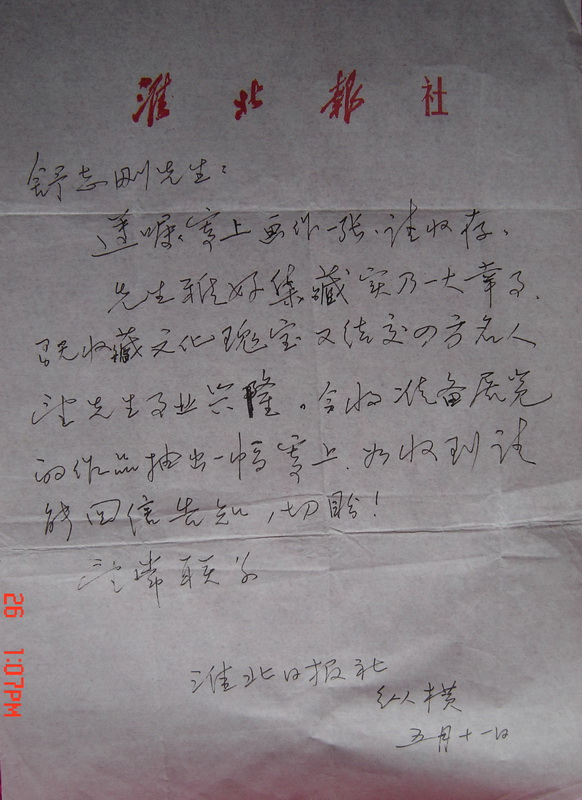 淮北報社
舒志刚先生：
遵嘱寄上画作一张，请收存。
先生雅好集藏实乃一大幸事，
既收藏文化瑰宝又结交四方名人
望先生事业兴隆。今将准备展览
的作品抽出一幅寄上，如收到请
能回信告知，切盼！
望常联系
淮北日报社
纵横
五月十一日
26 1:07PM